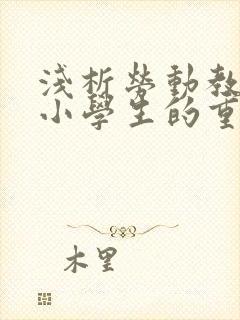 淺析勞動教
小學生的重
木里